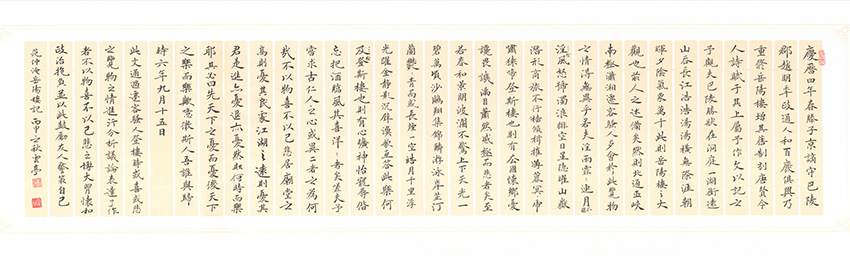 慶曆四年春滕子京謫守巴陵
郡越明年政通人和百廢俱興乃
重修岳陽樓增其舊制刻唐賢今
人詩賦于其上屬予作文以記之
予觀夫巴陵勝狀在洞庭一湖銜遠
山吞長江浩浩湯湯橫無際涯朝
暉夕陰氣象萬千此則岳陽樓之大
觀也前人之述備矣然則北通巫峽
南極瀟湘遷客騷人多會於此覽物
之情得無異乎若夫淫雨霏霏連月不開
風怒號濁浪排空日星隱曜山嶽
潛形商旅不行檣傾楫摧薄暮冥冥虎
嘯猿啼登斯樓也則有去國懷鄉憂
讒畏譏滿目蕭然感極而悲者矣至
若春和景明波瀾不驚上下天光一
碧萬頃沙鷗翔集錦鱗游泳岸芷汀
蘭鬱鬱青青而或長煙一空皓月千里浮
光躍金靜影沉璧漁歌互答此樂何
極登斯樓也則有心曠神怡寵辱偕
忘把酒臨風其喜洋洋者矣嗟夫予
嘗求古仁人之心或異二者之為何
哉不以物喜不以己悲居廟堂之
高則憂其民處江湖之遠則憂其
君是進亦憂退亦憂然則何時而樂
耶其必曰先天下之憂而憂後天下
之樂而樂歟噫微斯人吾誰與歸
時六年九月十五日
此文通過遷客騷人登樓時或喜或悲
之覽物之情進行分析議論表達了作
者不以物喜不以己悲之博大胸懷和
政治抱負並以此鼓勵友人警策自己
范仲淹岳陽樓記 丙申之秋雲亭